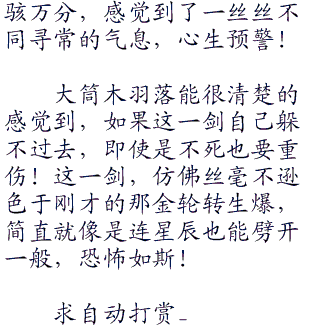 骇万分，感觉到了一丝丝不
同寻常的气息，心生预警！
大筒木羽落能很清楚的
感觉到，如果这一剑自己躲
不过去，即使是不死也要重
伤！这一剑，仿佛丝毫不逊
色于刚才的那金轮转生爆，
简直就像是连星辰也能劈开
一般，恐怖如斯！
求自动打赏_